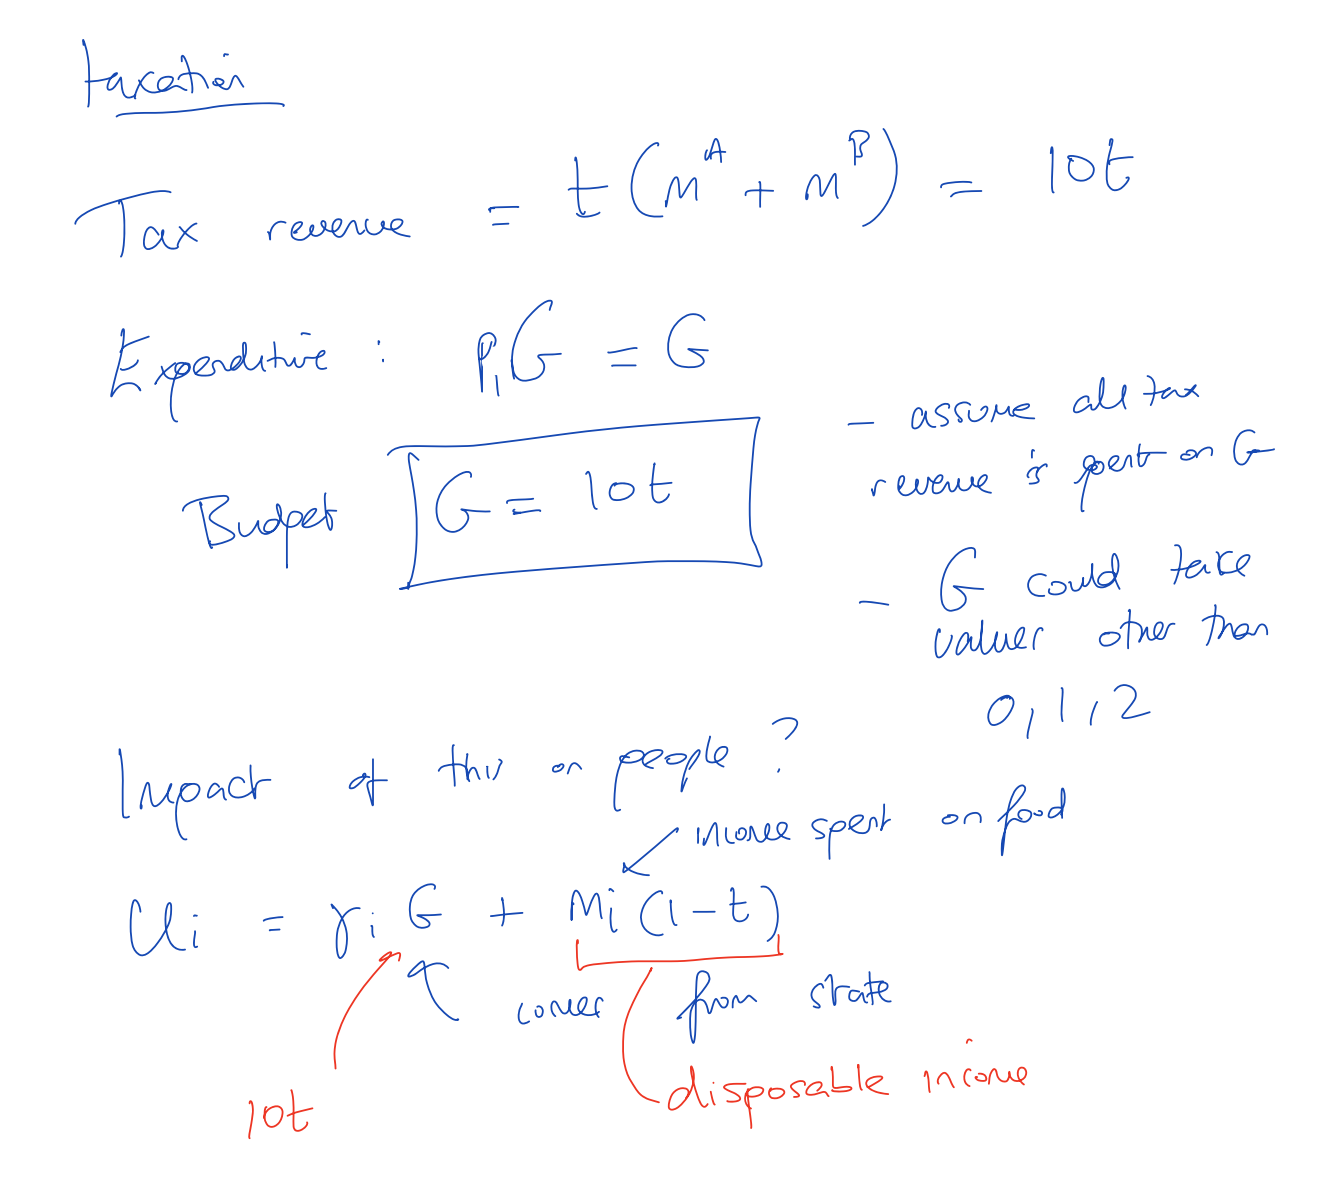 taxation
Tax revenue = t (m^A + m^B) = 10t
Expenditure : P₁G = G
Budget G = 10t
- assume all tax
revenue is spent on G
- G could take
values other than
0, 1, 2
Impact of this on people ?
income spent on food
Ui = γi G + Mi (1-t)
comes from state
disposable income
10t